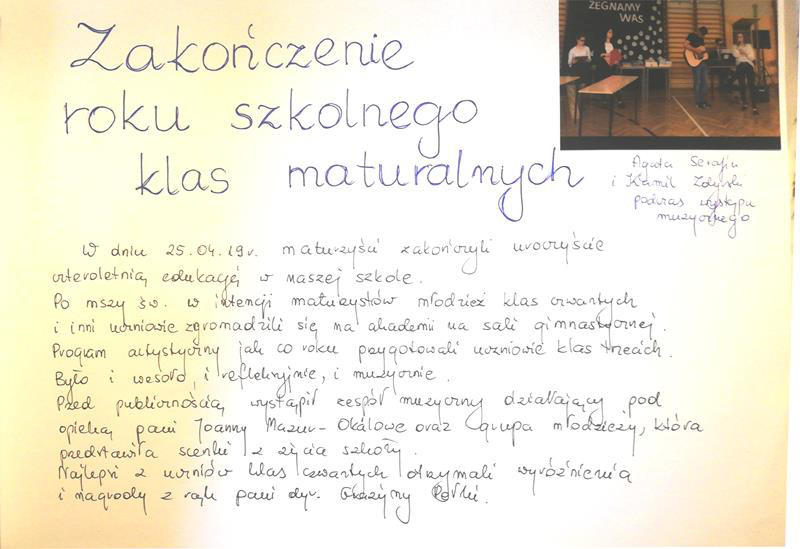 Zakończenie
roku szkolnego
klas maturalnych
ŻEGNAMY
WAS
Agata Serafin
i Kamil
podczas występu
muzycznego
W dniu 25.04.19r. maturzyści zakończyli uroczyście
czteroletnią edukację w naszej szkole.
Po mszy św. w intencji maturzystów młodzież klas czwartych
i inni uczniowie zgromadzili się na akademii na sali gimnastycznej.
Program artystyczny jak co roku przygotowali uczniowie klas trzecich.
Było i wesoło, i refleksyjnie, i muzycznie.
Przed publicznością wystąpił zespół muzyczny działający pod
opieką pani Joanny Mazur-Okálowe oraz grupa młodzieży, która
przedstawiła scenki z życia szkoły.
Najlepsi z uczniów klas czwartych otrzymali wyróżnienia
i nagrody z rąk pani dyr. Grażyny